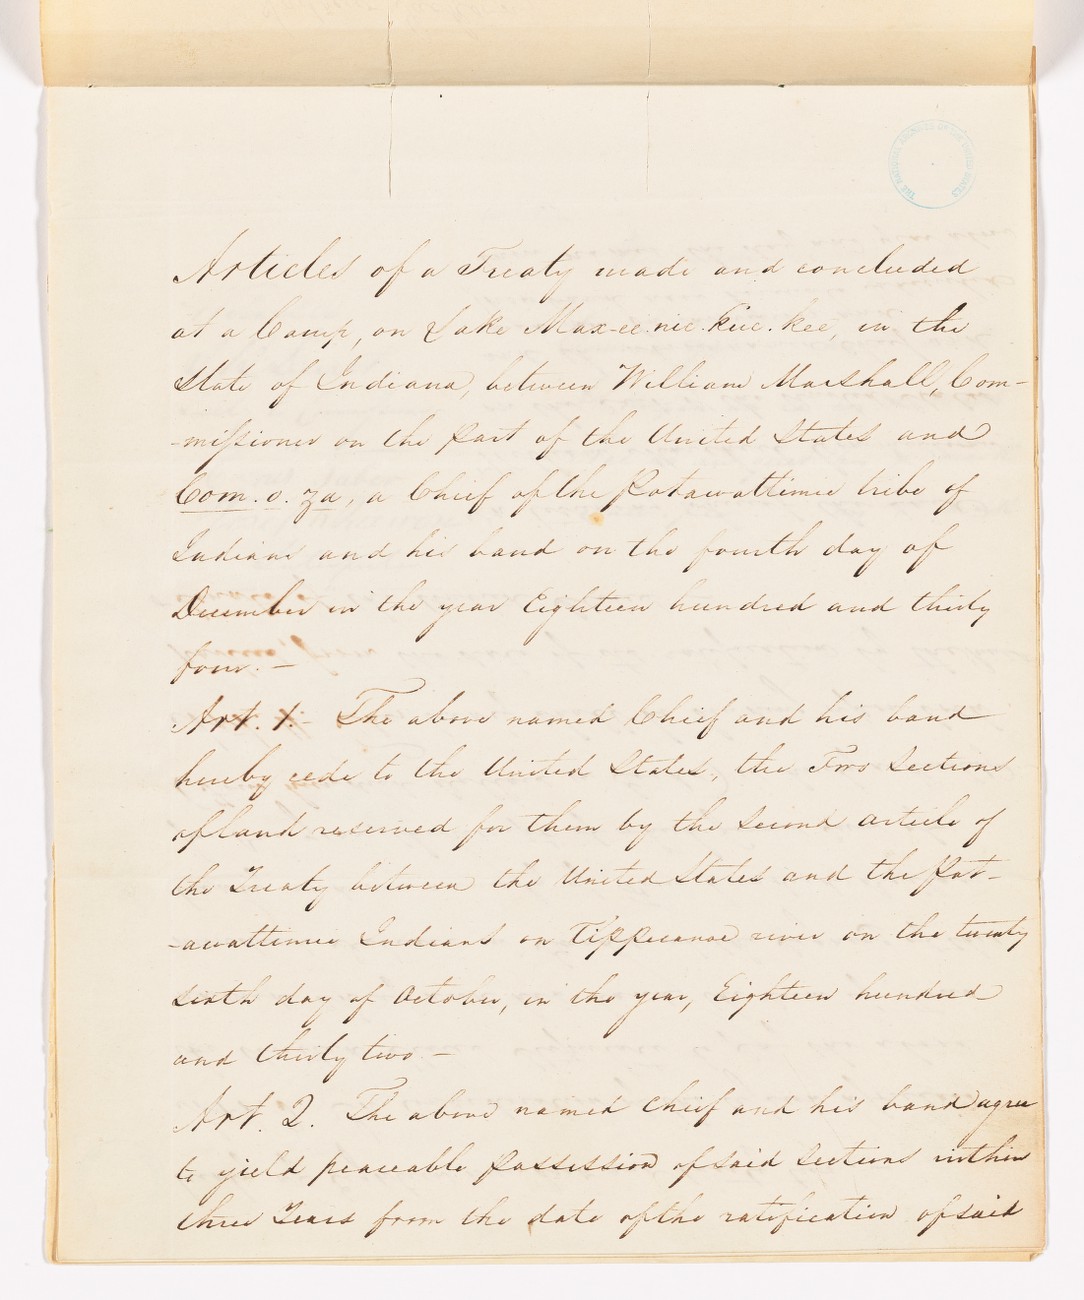 THE NATIONAL ARCHIVES OF THE UNITED STATES
Articles of a Treaty made and concluded
at a Camp, on Lake Max-ee.nie.kue.kee, in the
State of Indiana, between William Marshall, Com-
-missioner on the part of the United States and
Com.o.za, a Chief of the Potawattimie tribe of
Indians and his band on the fourth day of
December in the year Eighteen hundred and thirty
four. -
Art. 1. - The above named Chief and his band
hereby cede to the United States, the Two Sections
of land reserved for them by the second article of
the Treaty between the United States and the Pot-
-awattimie Indians on Tippecanoe river on the twenty
sixth day of October, in the year, Eighteen hundred
and thirty two -
Art. 2. The above named chief and his band agree
to yield peaceable possession of said sections within
three Years from the date of the ratification of said